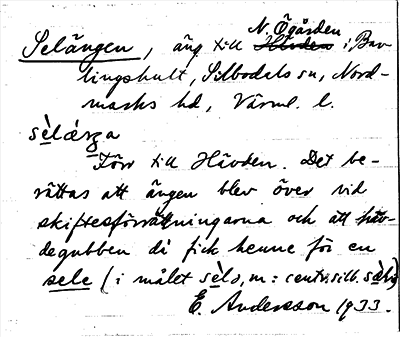 N. Ögården
Selängen, äng till Hävden i Bav-
lingshult, Silbodals sn, Nord-
marks hd, Värml. l.
sèlæ̀rga
Förr till Hävden. Det be-
rättas att ängen blev över vid
skiftesförrättningarna och att häv-
degubben di fick henne för en
sele (i målet sèlɔ, m: centr. silb. sæ̀lɔ)
E. Andersson 1933.